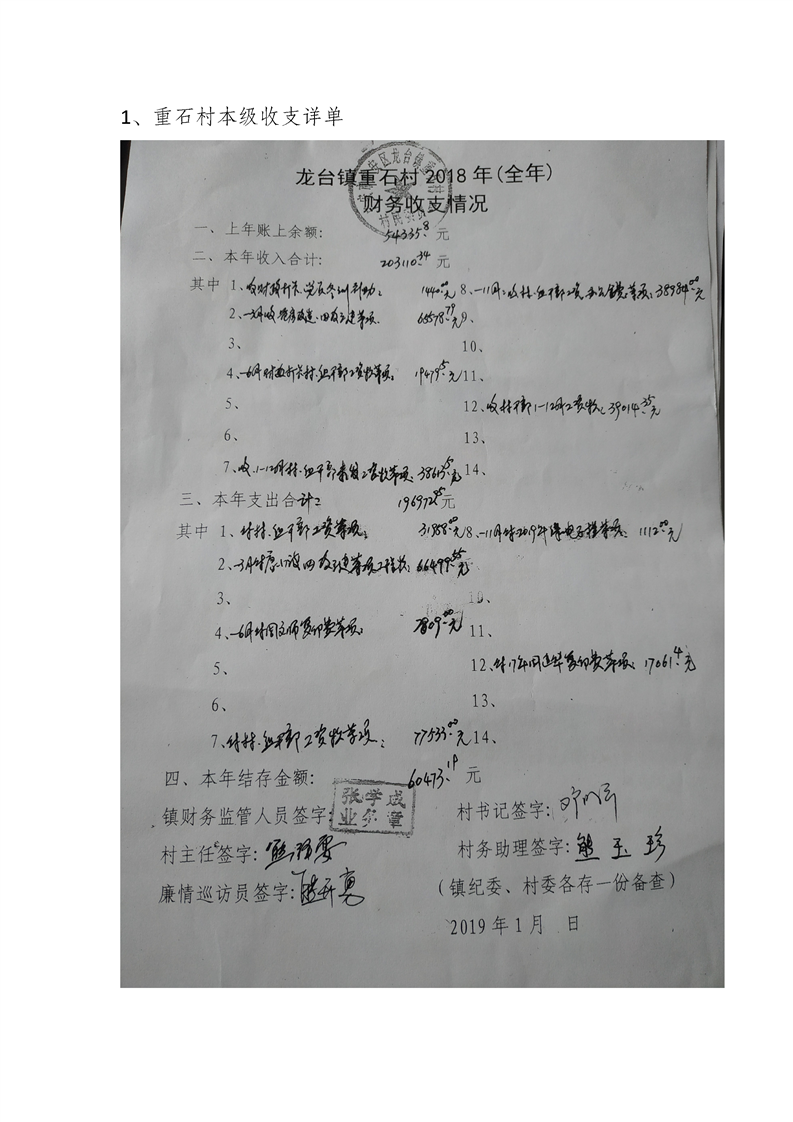 1、重石村本级收支详单
龙台镇重石村2018年(全年)
财务收支情况
一、上年账上余额: 54335.8 元
二、本年收入合计: 203110.34 元
其中 1、收财政补 党员冬训补助: 1440.00元 8、-11月:收村、组干部工资 办公费等项: 38984.00元
2、-3月收 危房改造 四 等项: 65578.79元 9、
3、 10、
4、-6月财政补 村、组干部工资款等项: 19479.5元 11、
5、 12、收村干部1-12月工资款: 39014.35元
6、 13、
7、收1-12月村、组干部 工资款等项: 38613.5元 14、
三、本年支出合计: 196972.95元
其中 1、付村、组干部工资等项: 31958.00元 8、-11月付2019年 等项: 1112.00元
2、-3月付 四 等项工程款: 66499.55元
3、 10、
4、-6月付图文 复印费等项: 2809.00元 11、
5、 12、付17年 复印费等项: 17061.4元
6、 13、
7、付村、组干部工资款等项: 77533.00元 14、
四、本年结存金额: 60473.19 元
镇财务监管人员签字: 张学成业务章 村书记签字:
村主任签字: 村务助理签字: 熊玉珍
廉情巡访员签字: (镇纪委、村委各存一份备查)
2019年1月 日